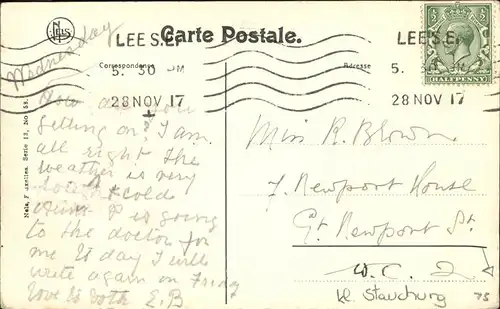 NELS
Carte Postale.
LEE S.E.
LEE S.E.
Correspondance
Adresse
5. 30 PM
5.
28 NOV 17
28 NOV 17
HALFPENNY
Wednesday
How are you
getting on? I am
all right the
weather is very
& cold
P is going
to the doctor for
me to day I will
write again on Friday
love to both E.B.
Miss R. Blown
7. Newport House
Gt. Newport St.
W.C. 2.
75
Nels, Bruxelles. Serie 13, No 58.